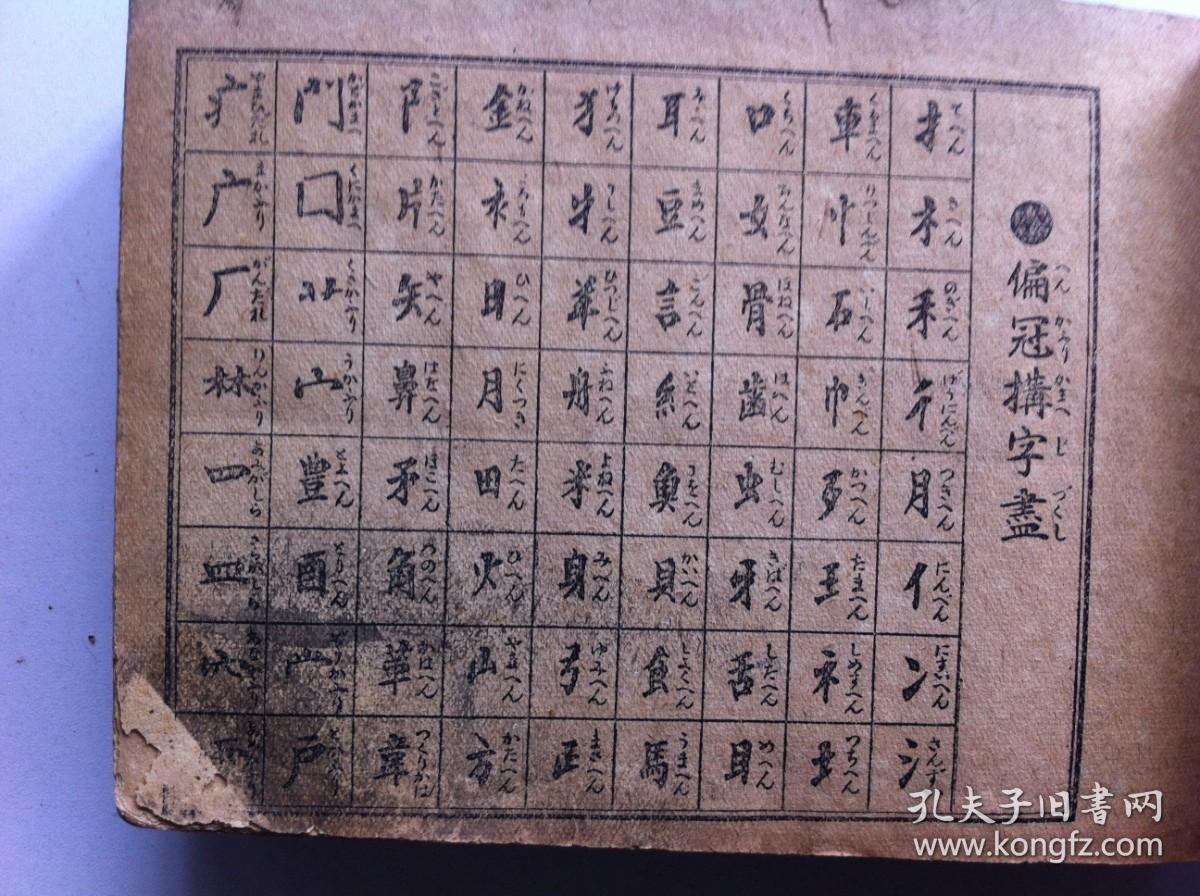 ●偏冠構字盡
へん かふり かまへ じ づくし
扌 てへん
木 きへん
禾 のぎへん
彳
月 つきへん
亻 にんべん
冫
氵
車 くるまへん
忄
石 いしへん
巾
歹 かつへん
王 たまへん
礻 しめすへん
土 つちへん
口 くちへん
女 をんなへん
骨 ほねへん
齒 はへん
虫 むしへん
牙 きばへん
舌 したへん
目 めへん
耳
豆 まめへん
言 ごんへん
糸 いとへん
魚 うをへん
貝 かいへん
食 しよくへん
馬 うまへん
犭 けものへん
牛 うしへん
羊 ひつじへん
舟 ふねへん
米 よねへん
身 みへん
弓 ゆみへん
正 まさへん
金 かねへん
衤 ころもへん
日 ひへん
月 にくつき
田 たへん
火 ひへん
山 やまへん
方 かたへん
阝 こざとへん
片 かたへん
矢 やへん
鼻 はなへん
矛 ほこへん
角 つのへん
革 かはへん
韋 つくりかは
門 かどかまへ
囗 くにかまへ
くさかふり
宀 うかふり
豊 とよへん
酉 とりへん
戸
疒 やまひだれ
广 まかふり
厂 がんだれ
林 りんかふり
罒 あみがしら
孔夫子旧書网
www.kongfz.com